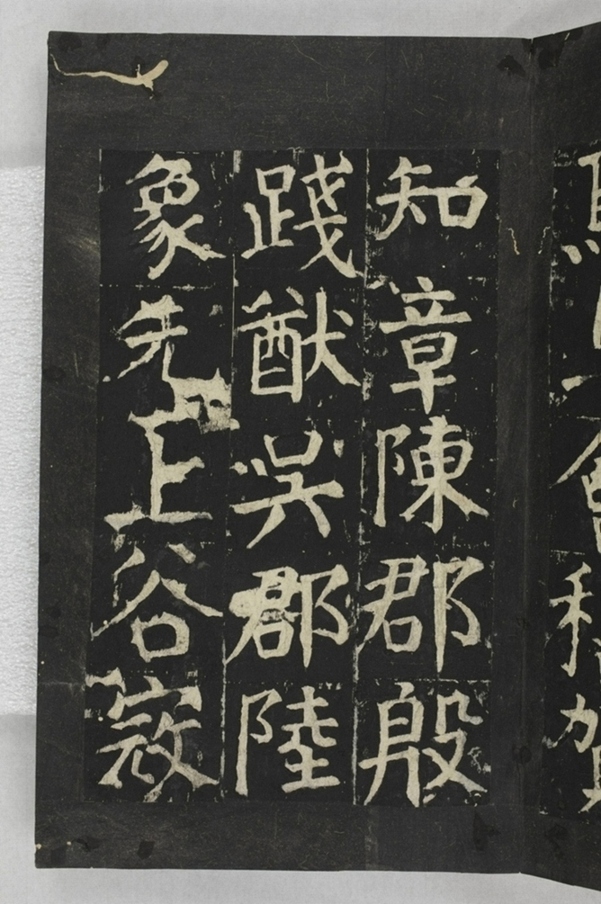 知章陳郡殷
踐猷吳郡陸
象先上谷寇